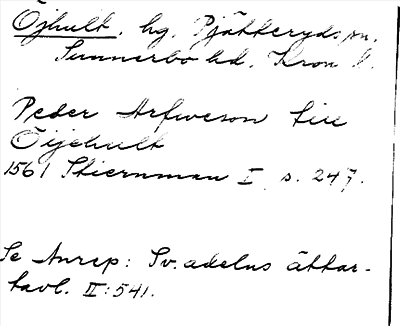 Öjhult, hg, Pjätteryds sn.
Sunnerbo hd. Kron. l.
Peder Arfweson till
Öijehult
1561 Stiernman I, s. 247.
Se Anrep: Sv. adelns ättar-
tavl. II: 541.